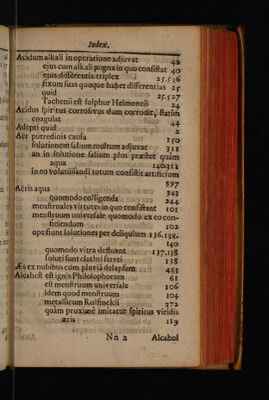 Index.
Acidum alkali in operatione adjuvat 42
ejus cum alkali pugna in quo consistat 40
ejus differentia triplex 25.536
fixum suas quoque habet differentias 25
quid 25.527
Tachenii est sulphur Helmontii 24
Acidus spiritus corrosivus dum corrodit, statim
coagulat 44
Adepti quid 2
Aer putredinis causa 150
solutionem salium multum adjuvat 311
an in solutione salium plus præstet quam
aqua 140.311
in eo volatilisandi totum consistit artificium
397
Aëris aqua 343
quomodo colligenda 244
menstruales virtutes in quo consistant 101
menstruum universale quomodo ex eo con-
ficiendum 102
ope fiunt solutiones per deliquium 136.138.
140
quomodo vitra destruat 137.138
soluti sunt clathri ferrei 138
Æs ex nubibus cum pluvia delapsum 483
Alcahest est ignis Philosophorum 61
est menstruum universale 106
idem quod menstruum 104
metallicum Rolfinckii 372
quàm proximè imitatur spiritus viridis
æris 119
Nn 2 Alcahol